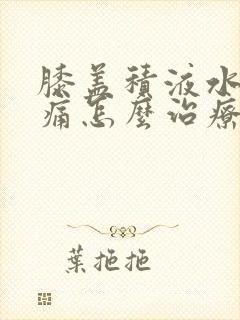 膝盖積液水
痛怎麼治療
葉拖拖